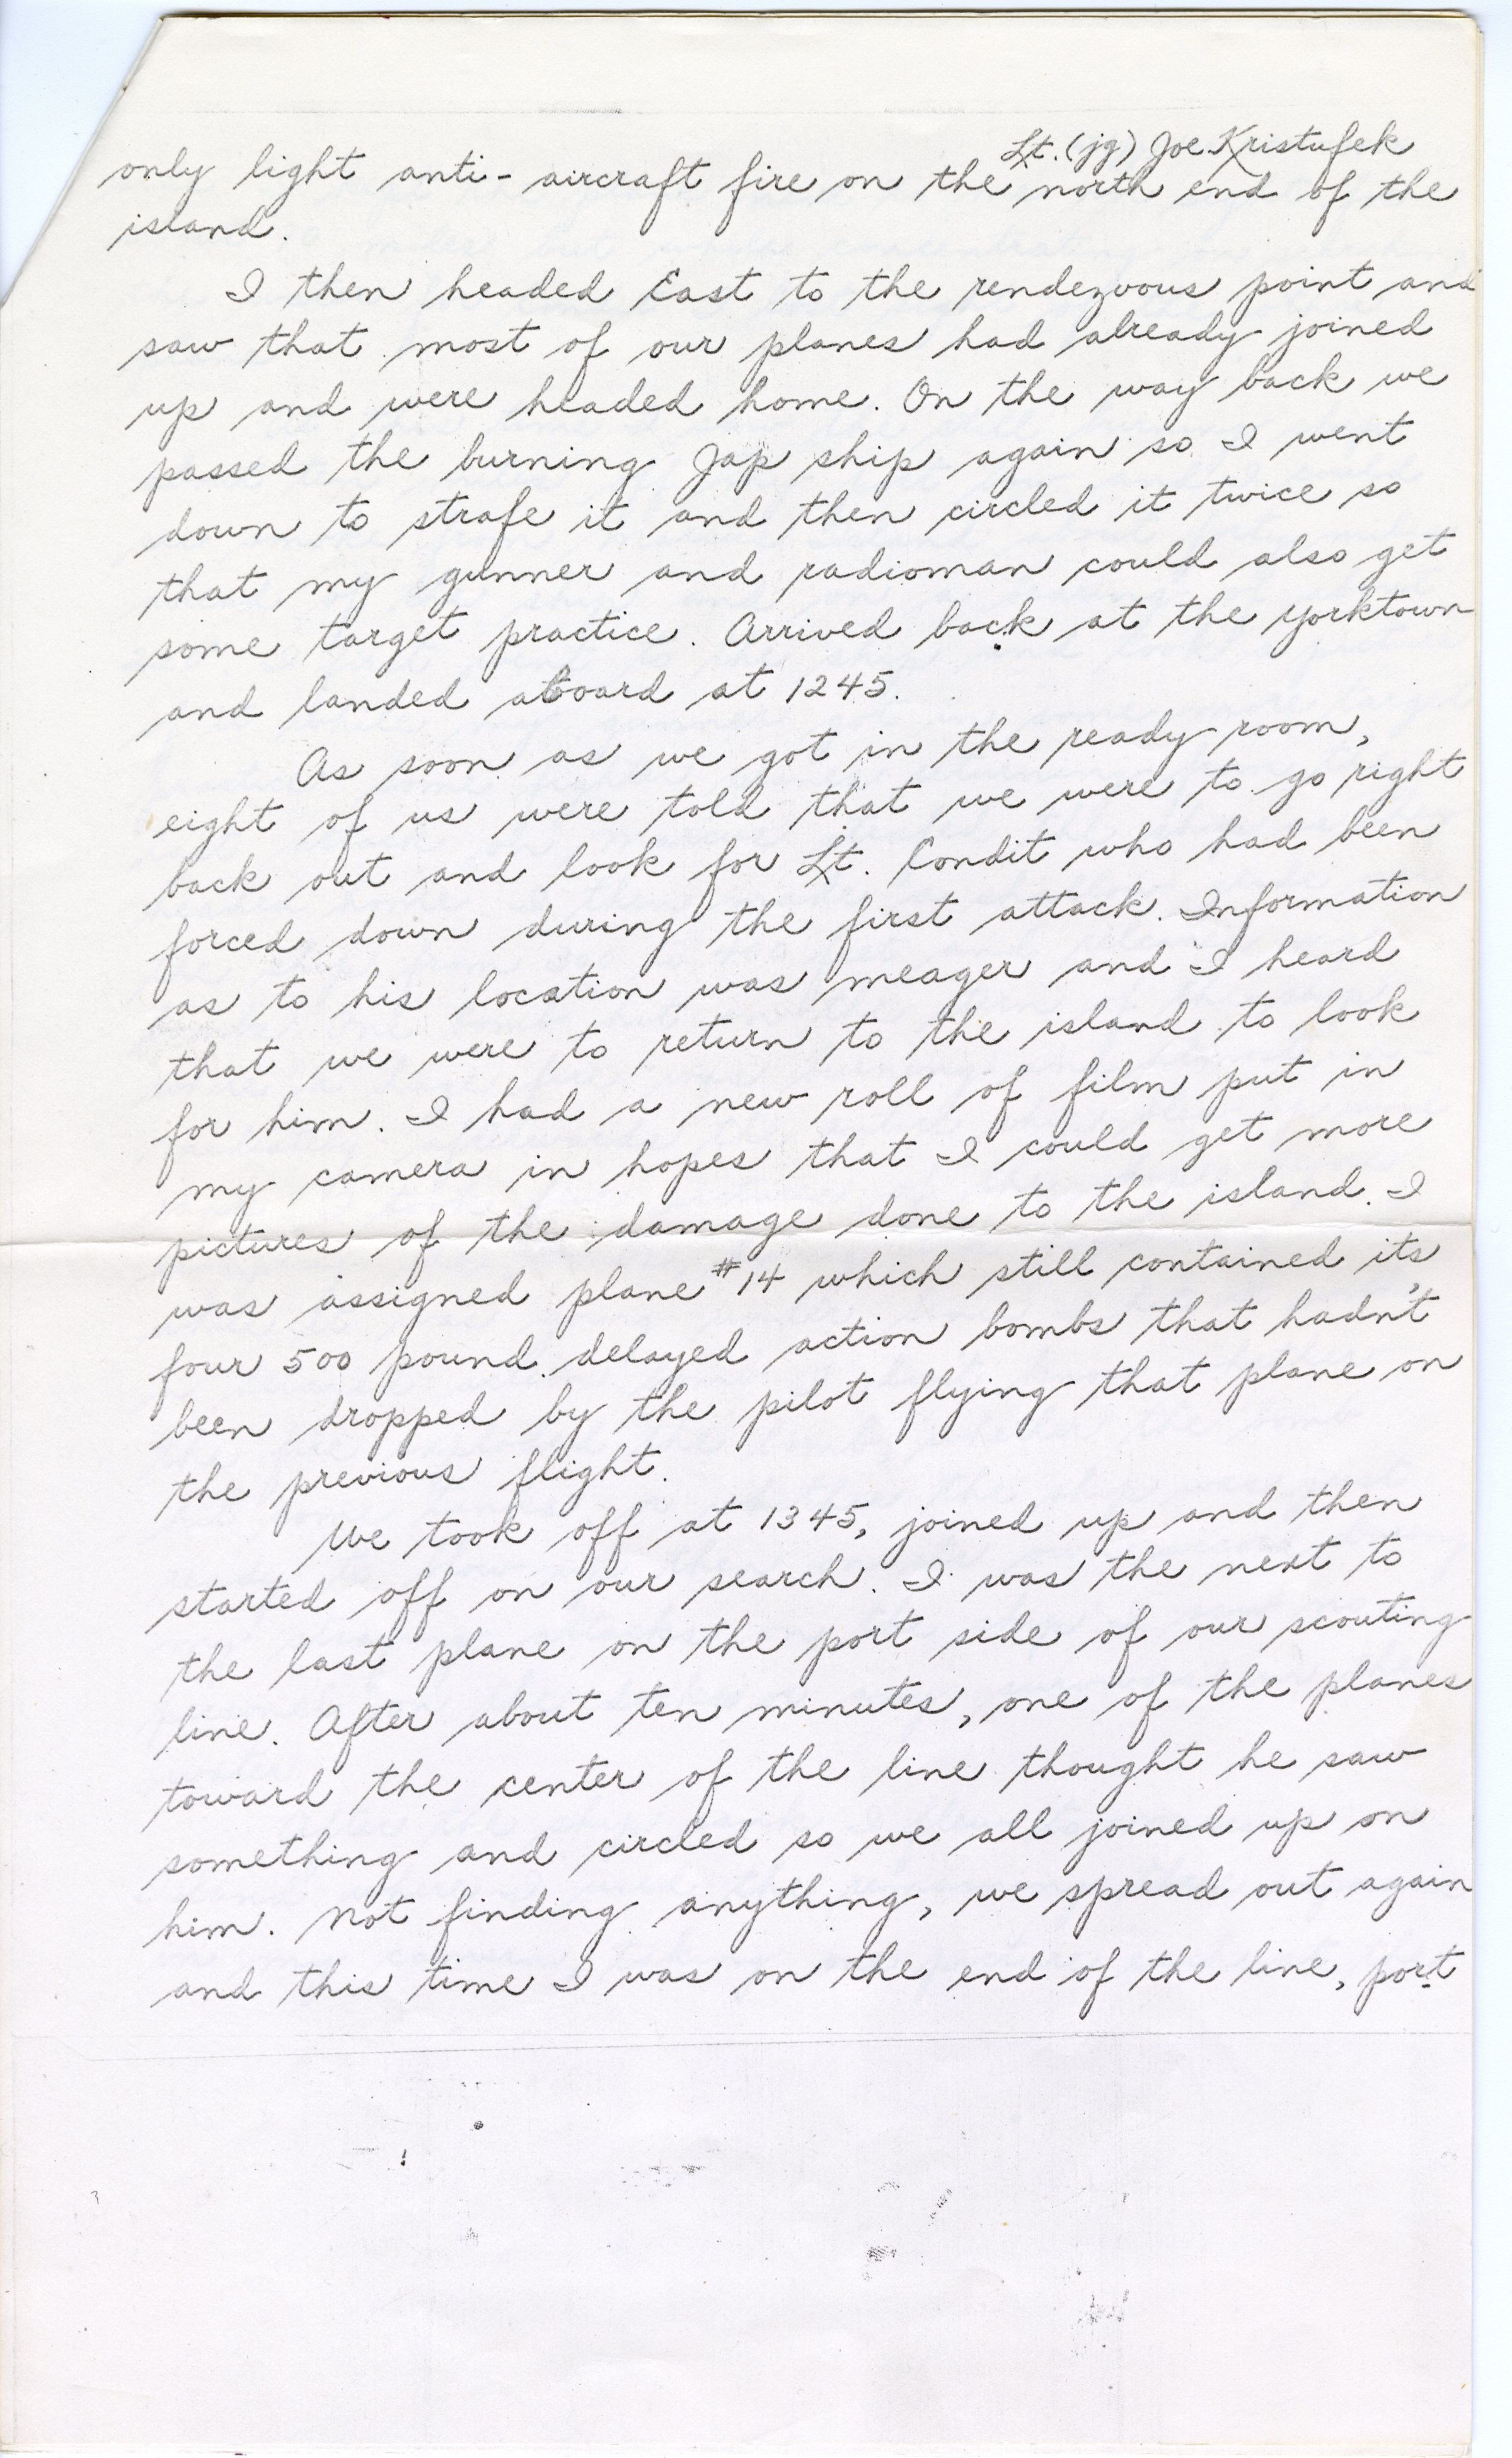 Lt. (jg) Joe Kristufek
only light anti-aircraft fire on the north end of the
island.
I then headed East to the rendezvous point and
saw that most of our planes had already joined
up and were headed home. On the way back we
passed the burning Jap ship again so I went
down to strafe it and then circled it twice so
that my gunner and radioman could also get
some target practice. Arrived back at the Yorktown
and landed aboard at 1245.
As soon as we got in the ready room,
eight of us were told that we were to go right
back out and look for Lt. Condit who had been
forced down during the first attack. Information
as to his location was meager and I heard
that we were to return to the island to look
for him. I had a new roll of film put in
my camera in hopes that I could get more
pictures of the damage done to the island. I
was assigned plane #14 which still contained its
four 500 pound delayed action bombs that hadn't
been dropped by the pilot flying that plane on
the previous flight.
We took off at 1345, joined up and then
started off on our search. I was the next to
the last plane on the port side of our scouting
line. After about ten minutes, one of the planes
toward the center of the line thought he saw
something and circled so we all joined up on
him. Not finding anything, we spread out again
and this time I was on the end of the line, port